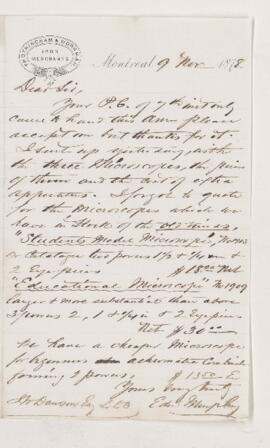 FROTHINGHAM & WORKMAN
IRON
MERCHANTS
Montreal 9 Nov 1878.
Dear Sir,
Your P.C. of 7th inst only
came to hand this a.m. please
accept our best thanks for it.
I sent up yesterday with
the three Microscopes, the price
of them and the list of extra
apparatus. I forgot to quote
for the Microscopes which we
have in stock of the old kinds.
"Students Model Microscope",
Catalogue two powers 1 & 1/4 in &
2 Eye pieces $18.00 Nett
"Educational Microscope" No 1909
larger & more substantial than above
3 powers 2, 1 & 1/4 in & 2 Eye pieces
Nett $30.00
We have a cheaper Microscope
for beginners achromatic
forming 2 powers, $13.50
Yours very truly
Dawson Esq LLD Edw. Murphy